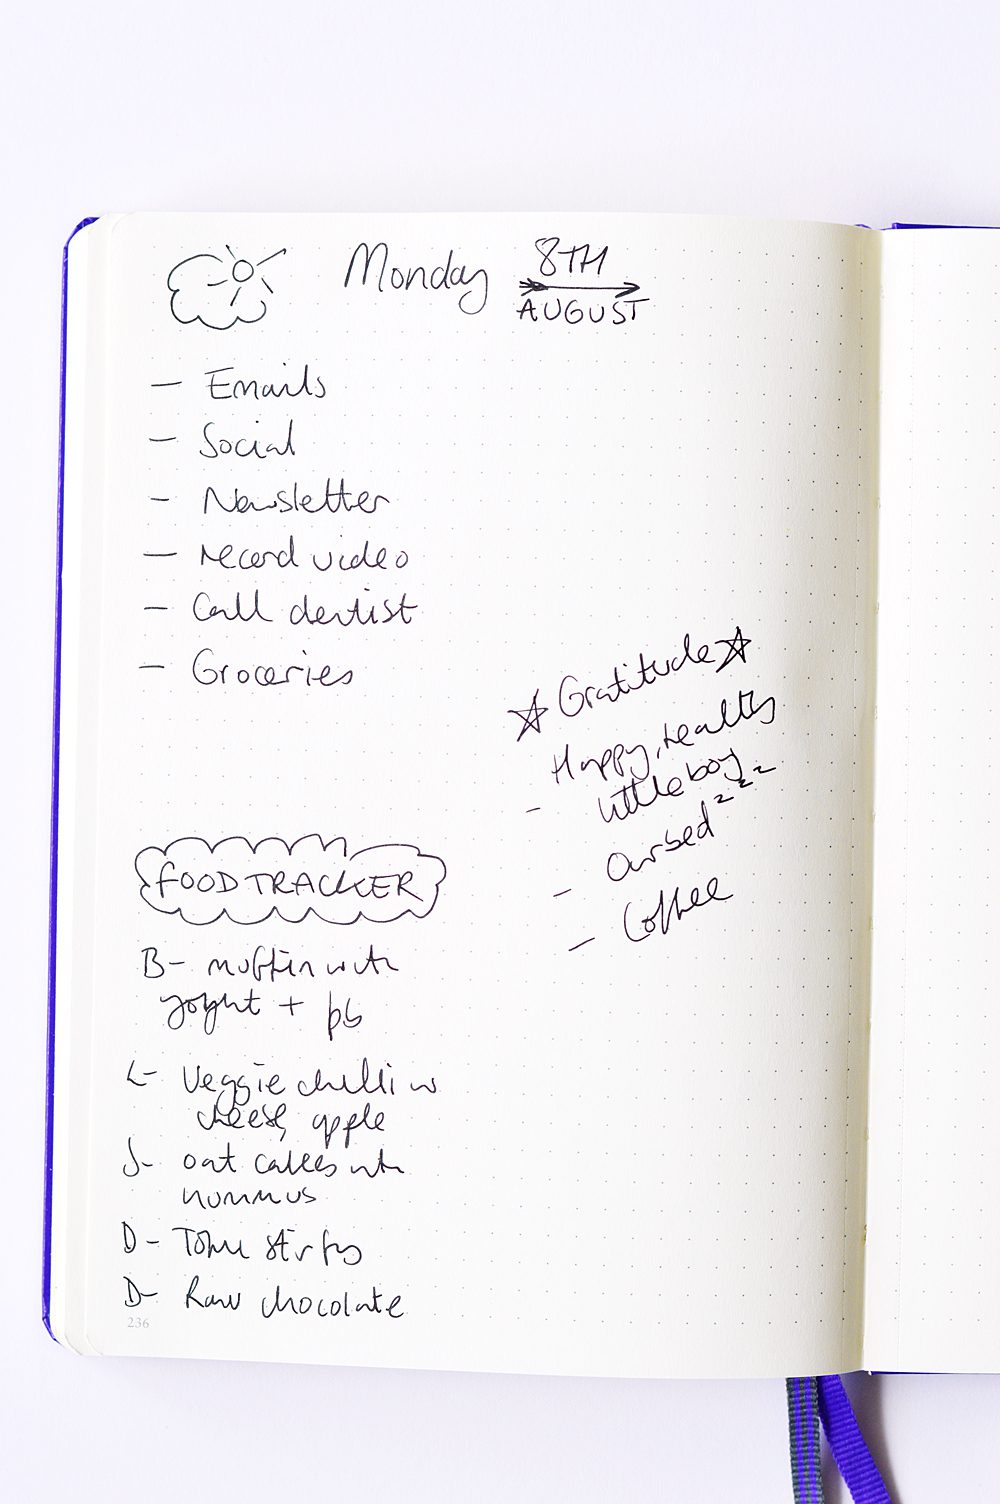 Monday 8TH
AUGUST
- Emails
- Social
- Newsletter
- record video
- Call dentist
- Groceries
☆ Gratitude ☆
- Happy, healthy
little boy
- Our bed zzz
- Coffee
FOOD TRACKER
B- muffin with
yoghurt + pb
L- Veggie chilli w
cheese, apple
S- oat cakes with
hummus
D- Tofu stir fry
D- Raw chocolate
236